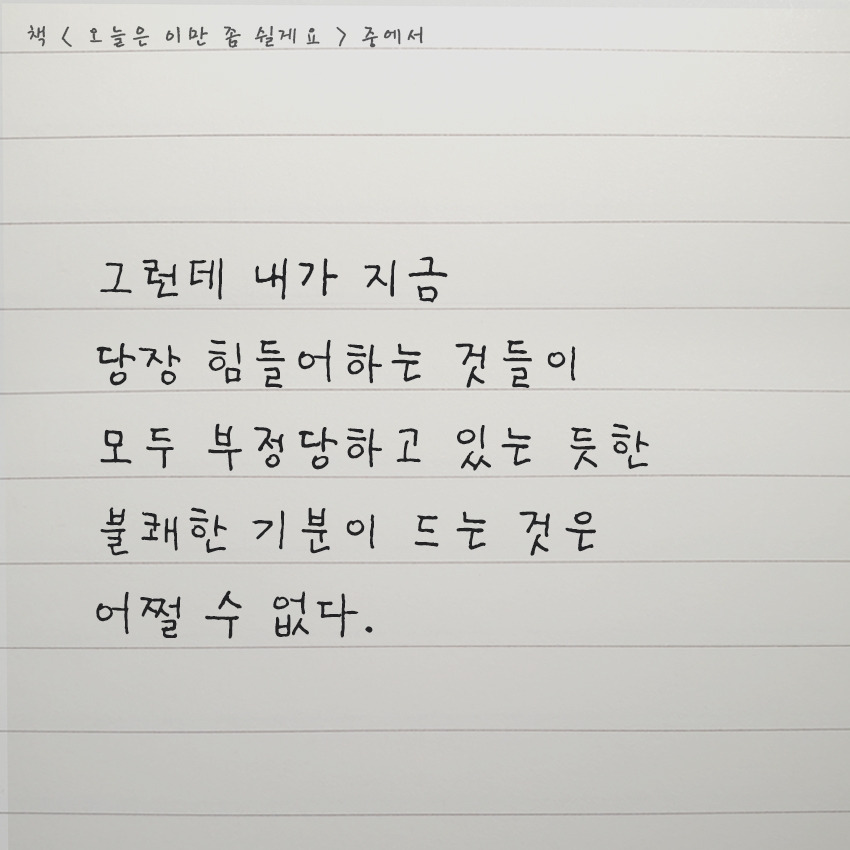 책 < 오늘은 이만 좀 쉴게요 > 중에서
그런데 내가 지금
당장 힘들어하는 것들이
모두 부정당하고 있는 듯한
불쾌한 기분이 드는 것은
어쩔 수 없다.